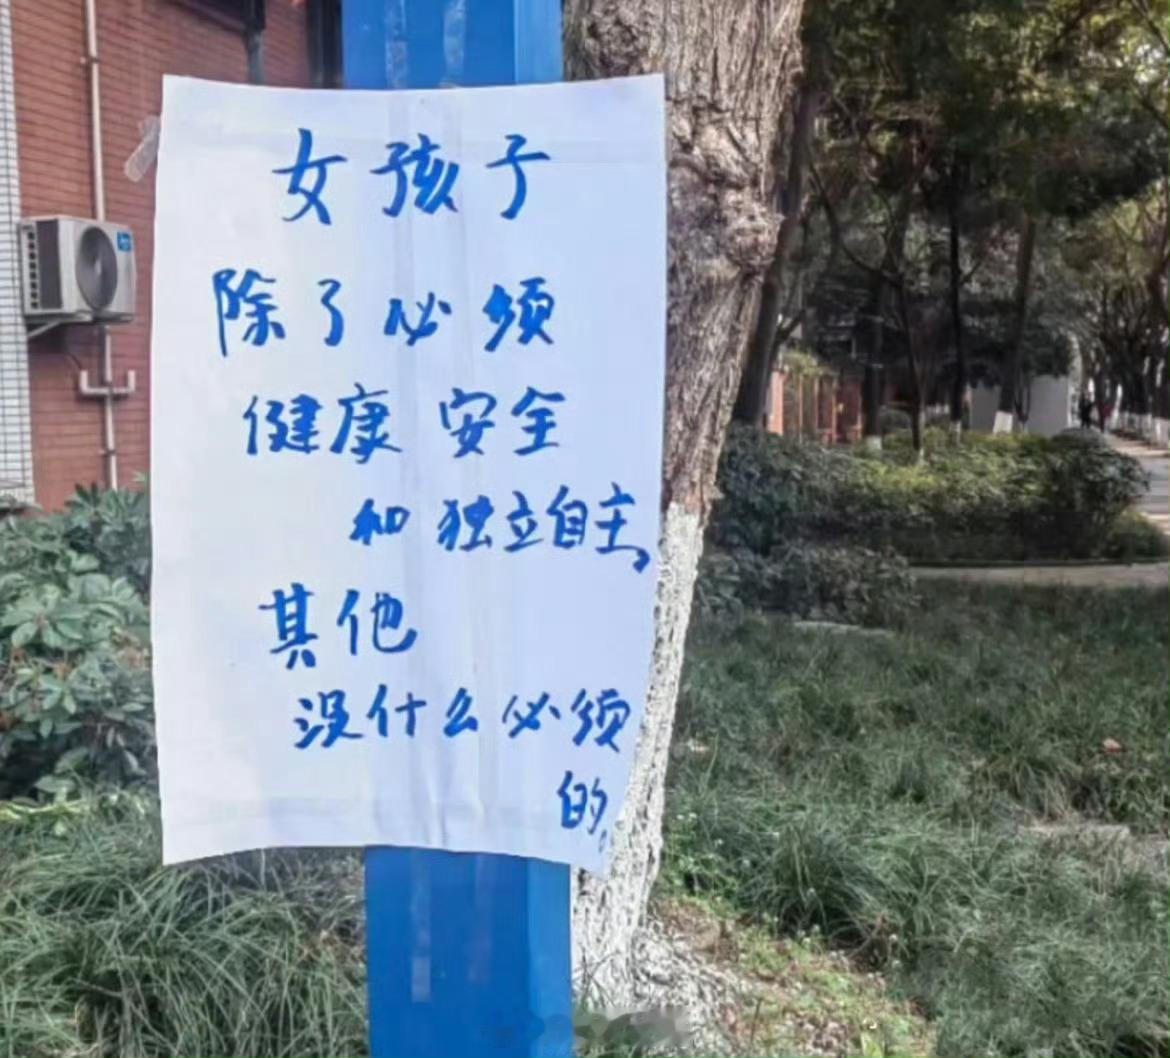 女孩子
除了必须
健康安全
和独立自主,
其他
没什么必须
的.